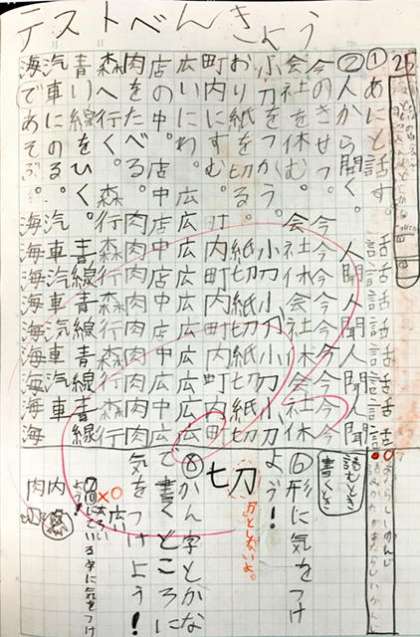 テストべんきょう
①あにと話す。話話話話話話話話
②人から聞く。人聞人聞人聞人聞
今のきせつ。今今今今今今今今
会社を休む。会社休会社休会社休
小刀をつかう。小刀小刀小刀小刀
おり紙を切る。紙切紙切紙切紙切
町内にすむ。町内町内町内町内
広いにわ。広広広広広広広広
店の中。店中店中店中店中
肉をたべる。肉肉肉肉肉肉肉肉
森へ行く。森行森行森行森行
青い線をひく。青線青線青線青線
汽車にのる。汽車汽車汽車汽車
海であそぶ。海海海海海海海海
読むとき
書くとき
⑥形に気をつけ
よう!
七刀
カとしないよ。
⑧かん字とかな
で書くところに
気をつけよう!
×○
広
にている字に気をつけ
よう!
肉内